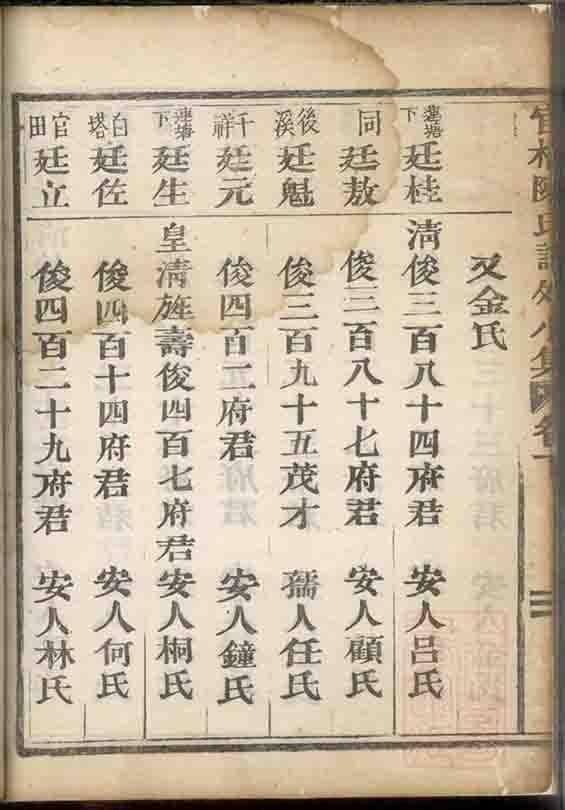 官村陳氏譜外八集 卷一
又金氏
蓮塘下 廷桂 清俊三百八十四府君 安人呂氏
同 廷敖 俊三百八十七府君 安人顧氏
後溪 廷魁 俊三百九十五茂才 孺人任氏
千祥 廷元 俊四百二府君 安人鐘氏
蓮塘下 廷生 皇清旌壽俊四百七府君 安人桐氏
白塔 廷佐 俊四百十四府君 安人何氏
官田 廷立 俊四百二十九府君 安人林氏